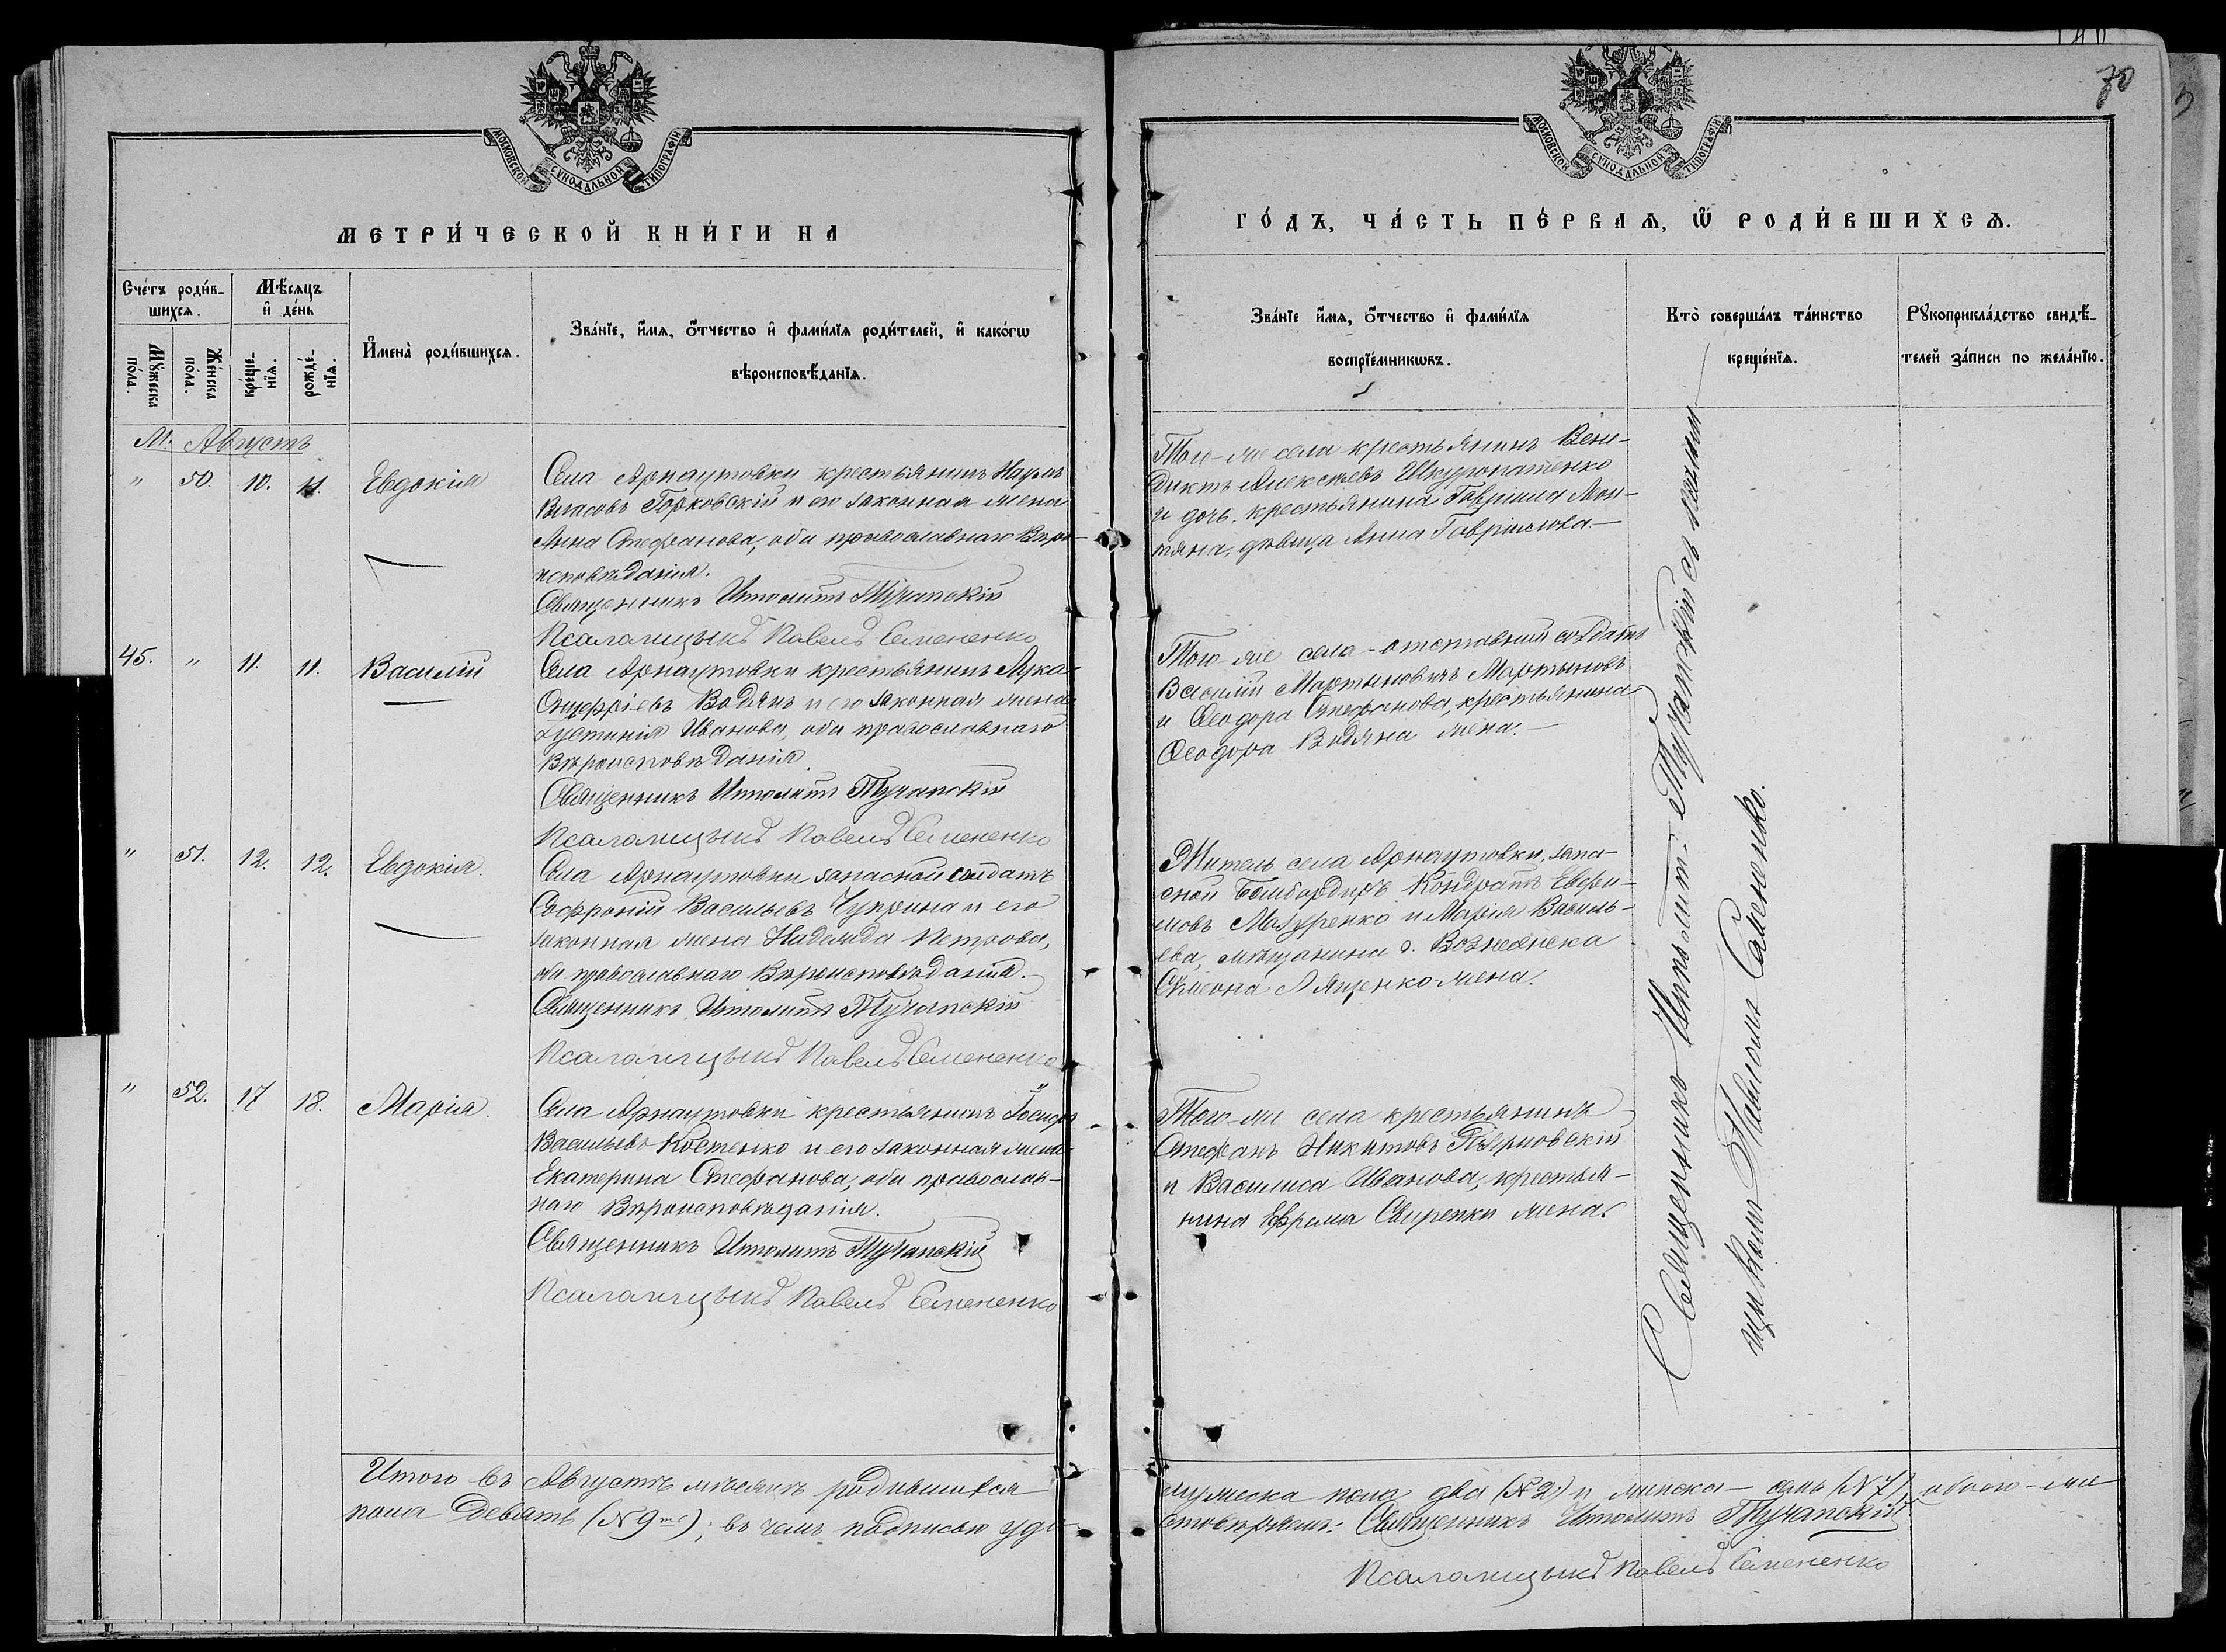 МОСКОВСКОЙ СѴНОДАЛЬНОЙ ТИПОГРАФІИ
МЕТРИ́ЧЕСКОЙ КНИ́ГИ НА
Сче́тъ роди́в-
шихсѧ.
Мѣ́сѧцъ
и҆ де́нь
Мꙋ́жеска
по́ла.
Же́нска
по́ла.
креще́-
нїѧ.
рожде́-
нїѧ.
И҆мена̀ роди́вшихсѧ.
Зва́нїе, и҆́мѧ, ѻ҆́тчество и҆ фами́лїѧ роди́телей, и҆ како́гѡ
вѣроисповѣ́данїѧ.
М. Августъ
" 50. 10. 11. Евдокія
Села Арнаутовки крестьянинъ Наумъ
Власовъ Горковскій и его законная жена
Анна Стефанова, оба православнаго Вѣро-
исповѣданія.
Священникъ Ипполитъ Тучапскій
Псаломщикъ Павелъ Семененко
45. " 11. 11. Василій
Села Арнаутовки крестьянинъ Лука
Онуфріевъ Водянъ и его законная жена
Устинія Иванова, оба православнаго
Вѣроисповѣданія.
Священникъ Ипполитъ Тучапскій
Псаломщикъ Павелъ Семененко
" 51. 12. 12. Евдокія.
Села Арнаутовки запасной солдатъ
Софроній Васильевъ Чуприна и его
законная жена Надежда Петрова,
оба православнаго Вѣроисповѣданія.
Священникъ Ипполитъ Тучапскій
Псаломщикъ Павелъ Семененко
" 52. 17 18. Марія.
Села Арнаутовки крестьянинъ Іосифъ
Васильевъ Костенко и его законная жена
Екатерина Стефанова, оба православ-
наго Вѣроисповѣданія.
Священникъ Ипполитъ Тучапскій
Псаломщикъ Павелъ Семененко
Итого въ Августѣ мѣсяцѣ родившихся
пола Девять (№ 9ть); въ чемъ подписью удо-
70
МОСКОВСКОЙ СѴНОДАЛЬНОЙ ТИПОГРАФІИ
ГО́ДЪ, ЧА́СТЬ ПЕ́РВАѦ, Ѡ҆ РОДИ́ВШИХСѦ.
Зва́нїе и҆́мѧ, ѻ҆́тчество и҆ фами́лїѧ
воспрїе́мникѡвъ.
Кто̀ соверша́лъ та́инство
креще́нїѧ.
Рꙋкоприкла́дство свидѣ́-
телей за́писи по жела́нїю.
Того-же села крестьянинъ Вени-
диктъ Алексѣевъ Шкуропатенко
и дочь крестьянина Гавріила Мол-
тяна, дѣвица Анна Гавріилова.
Того-же села - отставный солдатъ
Василій Мартиновичъ Мартыновъ
и Ѳеодора Стефанова, крестьянина
Ѳеодора Водяна жена.
Житель села Арнаутовки, запа-
сной Бомбардиръ Кондратъ Евфи-
мовъ Мазуренко и Марія Василь-
ева, мѣщанина г. Вознесенска
Симеона Лященко жена.
Того-же села крестьянинъ
Стефанъ Никитовъ
и Василиса Иванова, крестья-
нина Ефрема Свиренки жена.
Священникъ Ипполитъ Тучапскій съ псалом-
щикомъ Павломъ Семененко.
мужеска пола два (№ 2) и женска - семь (№ 7), обоего-же
стовѣряемъ: Священникъ Ипполитъ Тучапскій
Псаломщикъ Павелъ Семененко